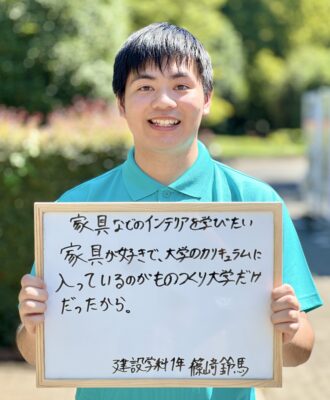 家具などのインテリアを学びたい
家具が好きで、大学のカリキュラムに
入っているのがものつくり大学だけ
だったから。
建設学科1年 篠崎鈴馬